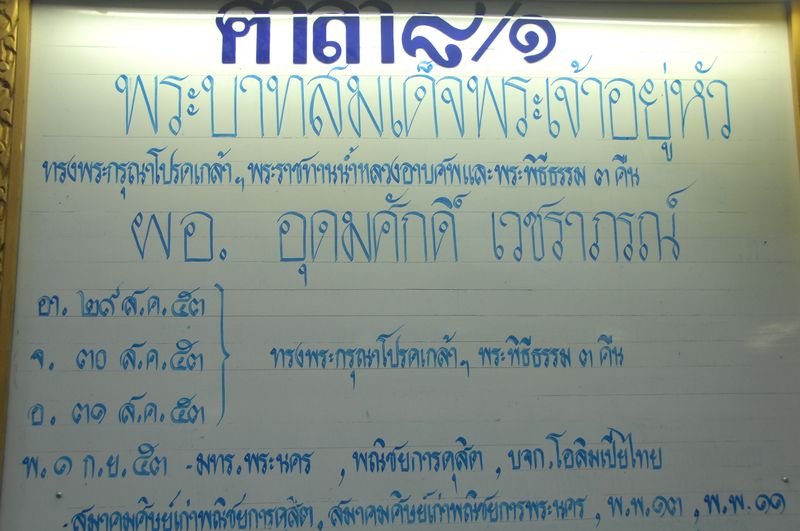 ศาลา ๘/๑
พระบาทสมเด็จพระเจ้าอยู่หัว
ทรงพระกรุณาโปรดเกล้าฯ พระราชทานน้ำหลวงอาบศพและพระพิธีธรรม ๓ คืน
ผอ. อุดมศักดิ์ เวชราภรณ์
อา. ๒๙ ส.ค. ๕๓
จ. ๓๐ ส.ค. ๕๓ ทรงพระกรุณาโปรดเกล้าฯ พระพิธีธรรม ๓ คืน
อ. ๓๑ ส.ค. ๕๓
พ. ๑ ก.ย. ๕๓ - มทร.พระนคร , พณิชยการดุสิต , บจก.โอลิมเปียไทย
- สมาคมศิษย์เก่าพณิชยการดุสิต, สมาคมศิษย์เก่าพณิชยการพระนคร , พ.พ.๑๓ , พ.พ.๑๑